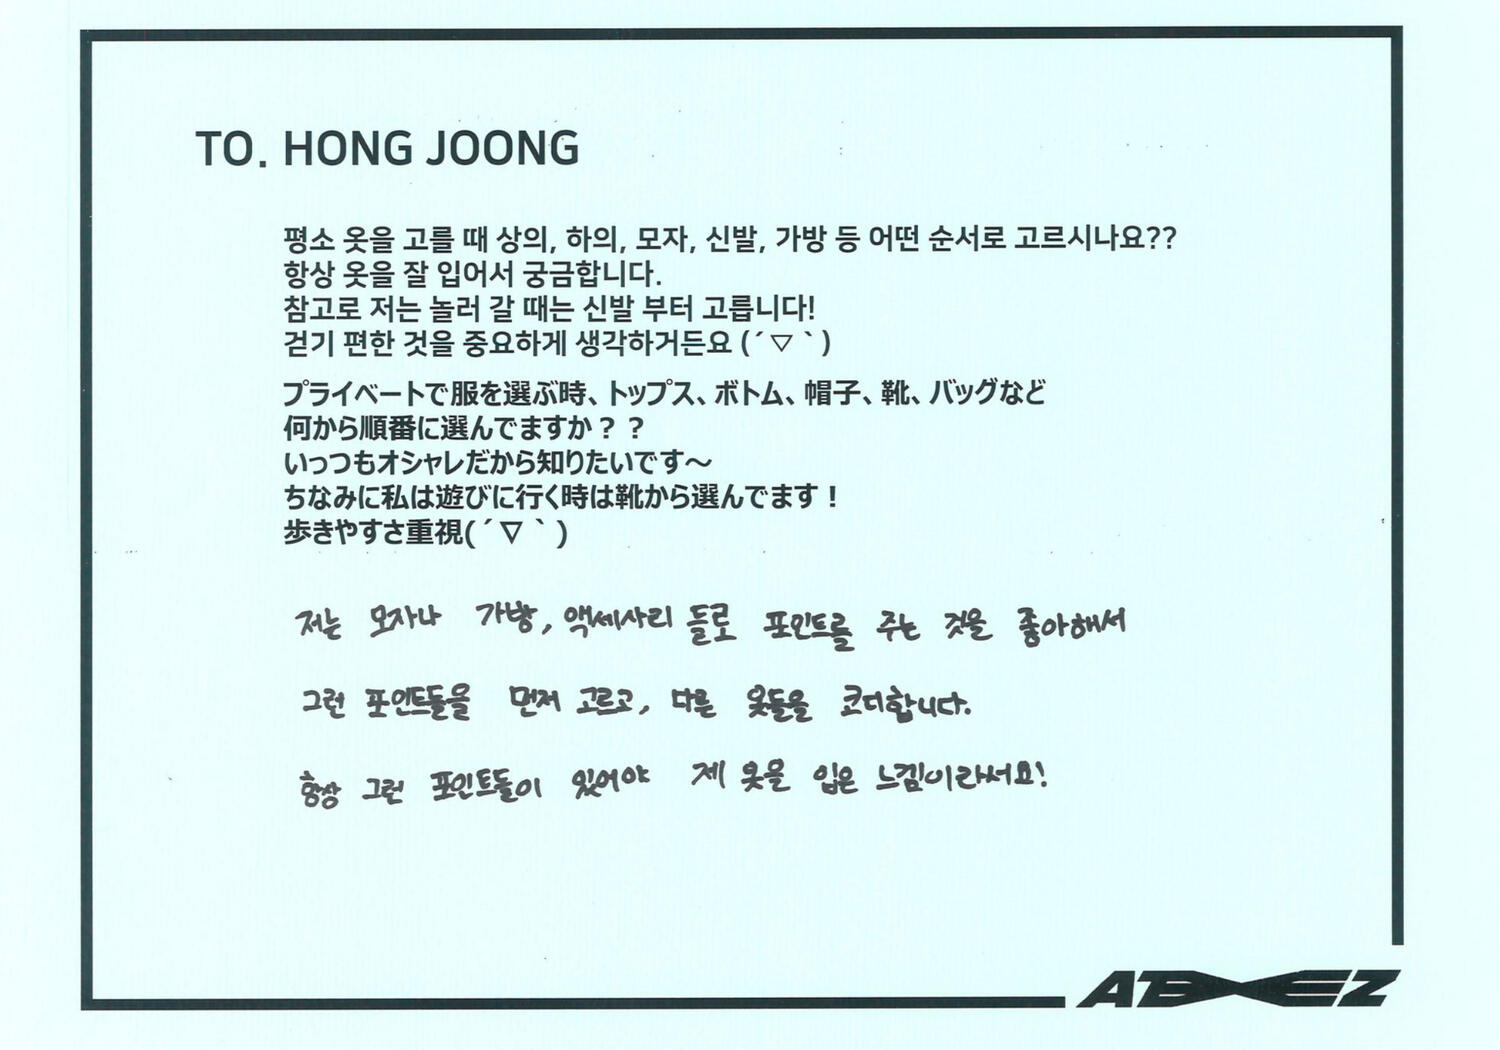 TO. HONG JOONG
평소 옷을 고를 때 상의, 하의, 모자, 신발, 가방 등 어떤 순서로 고르시나요??
항상 옷을 잘 입어서 궁금합니다.
참고로 저는 놀러 갈 때는 신발 부터 고릅니다!
걷기 편한 것을 중요하게 생각하거든요 (´▽｀)
プライベートで服を選ぶ時、トップス、ボトム、帽子、靴、バッグなど
何から順番に選んでますか？？
いっつもオシャレだから知りたいです～
ちなみに私は遊びに行く時は靴から選んでます！
歩きやすさ重視(´▽｀)
저는 모자나 가방, 액세사리 들로 포인트를 주는 것을 좋아해서
그런 포인트들을 먼저 고르고, 다른 옷들을 코디합니다.
항상 그런 포인트들이 있어야 제 옷을 입은 느낌이라서요!
ATEEZ